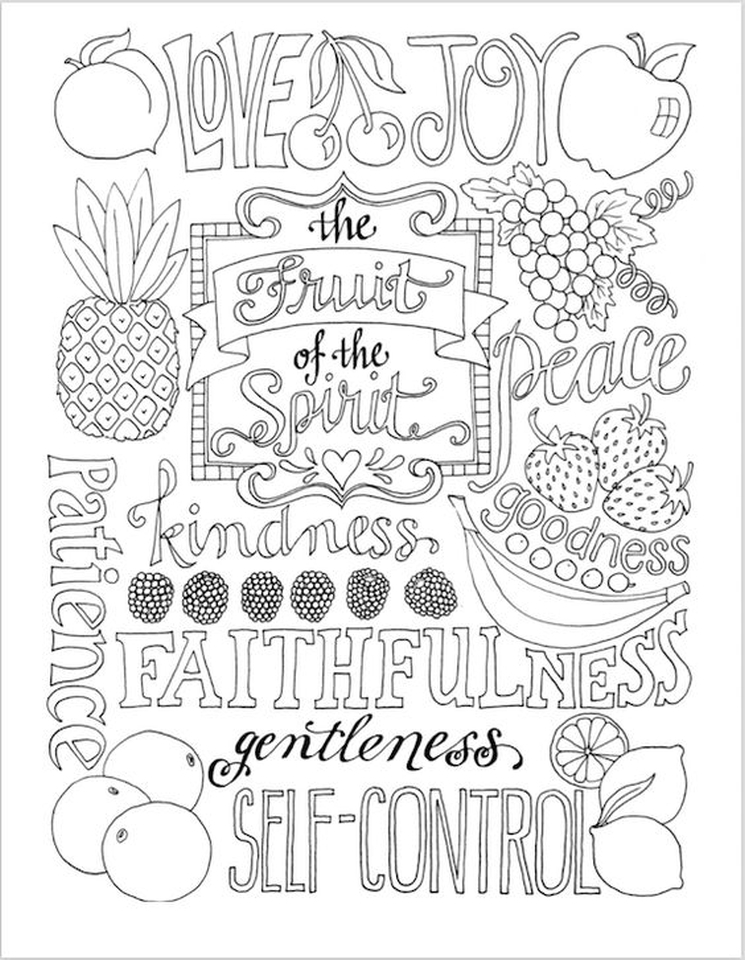 LOVE JOY
the
Fruit
of the
Spirit
peace
Patience
kindness
goodness
FAITHFULNESS
gentleness
SELF-CONTROL